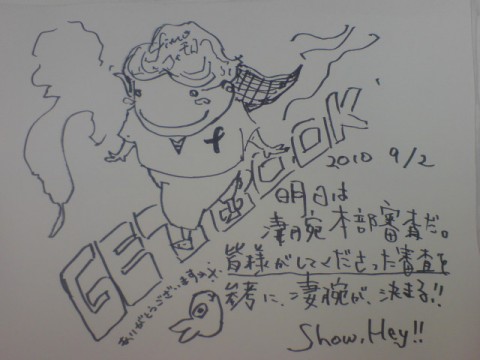 fimo
f
2010 9/2
明日は
凄腕本部審査だ。
皆様がしてくださった審査を
参考に、凄腕が、決まる!!
ありがとうございます
Show,Hey!!